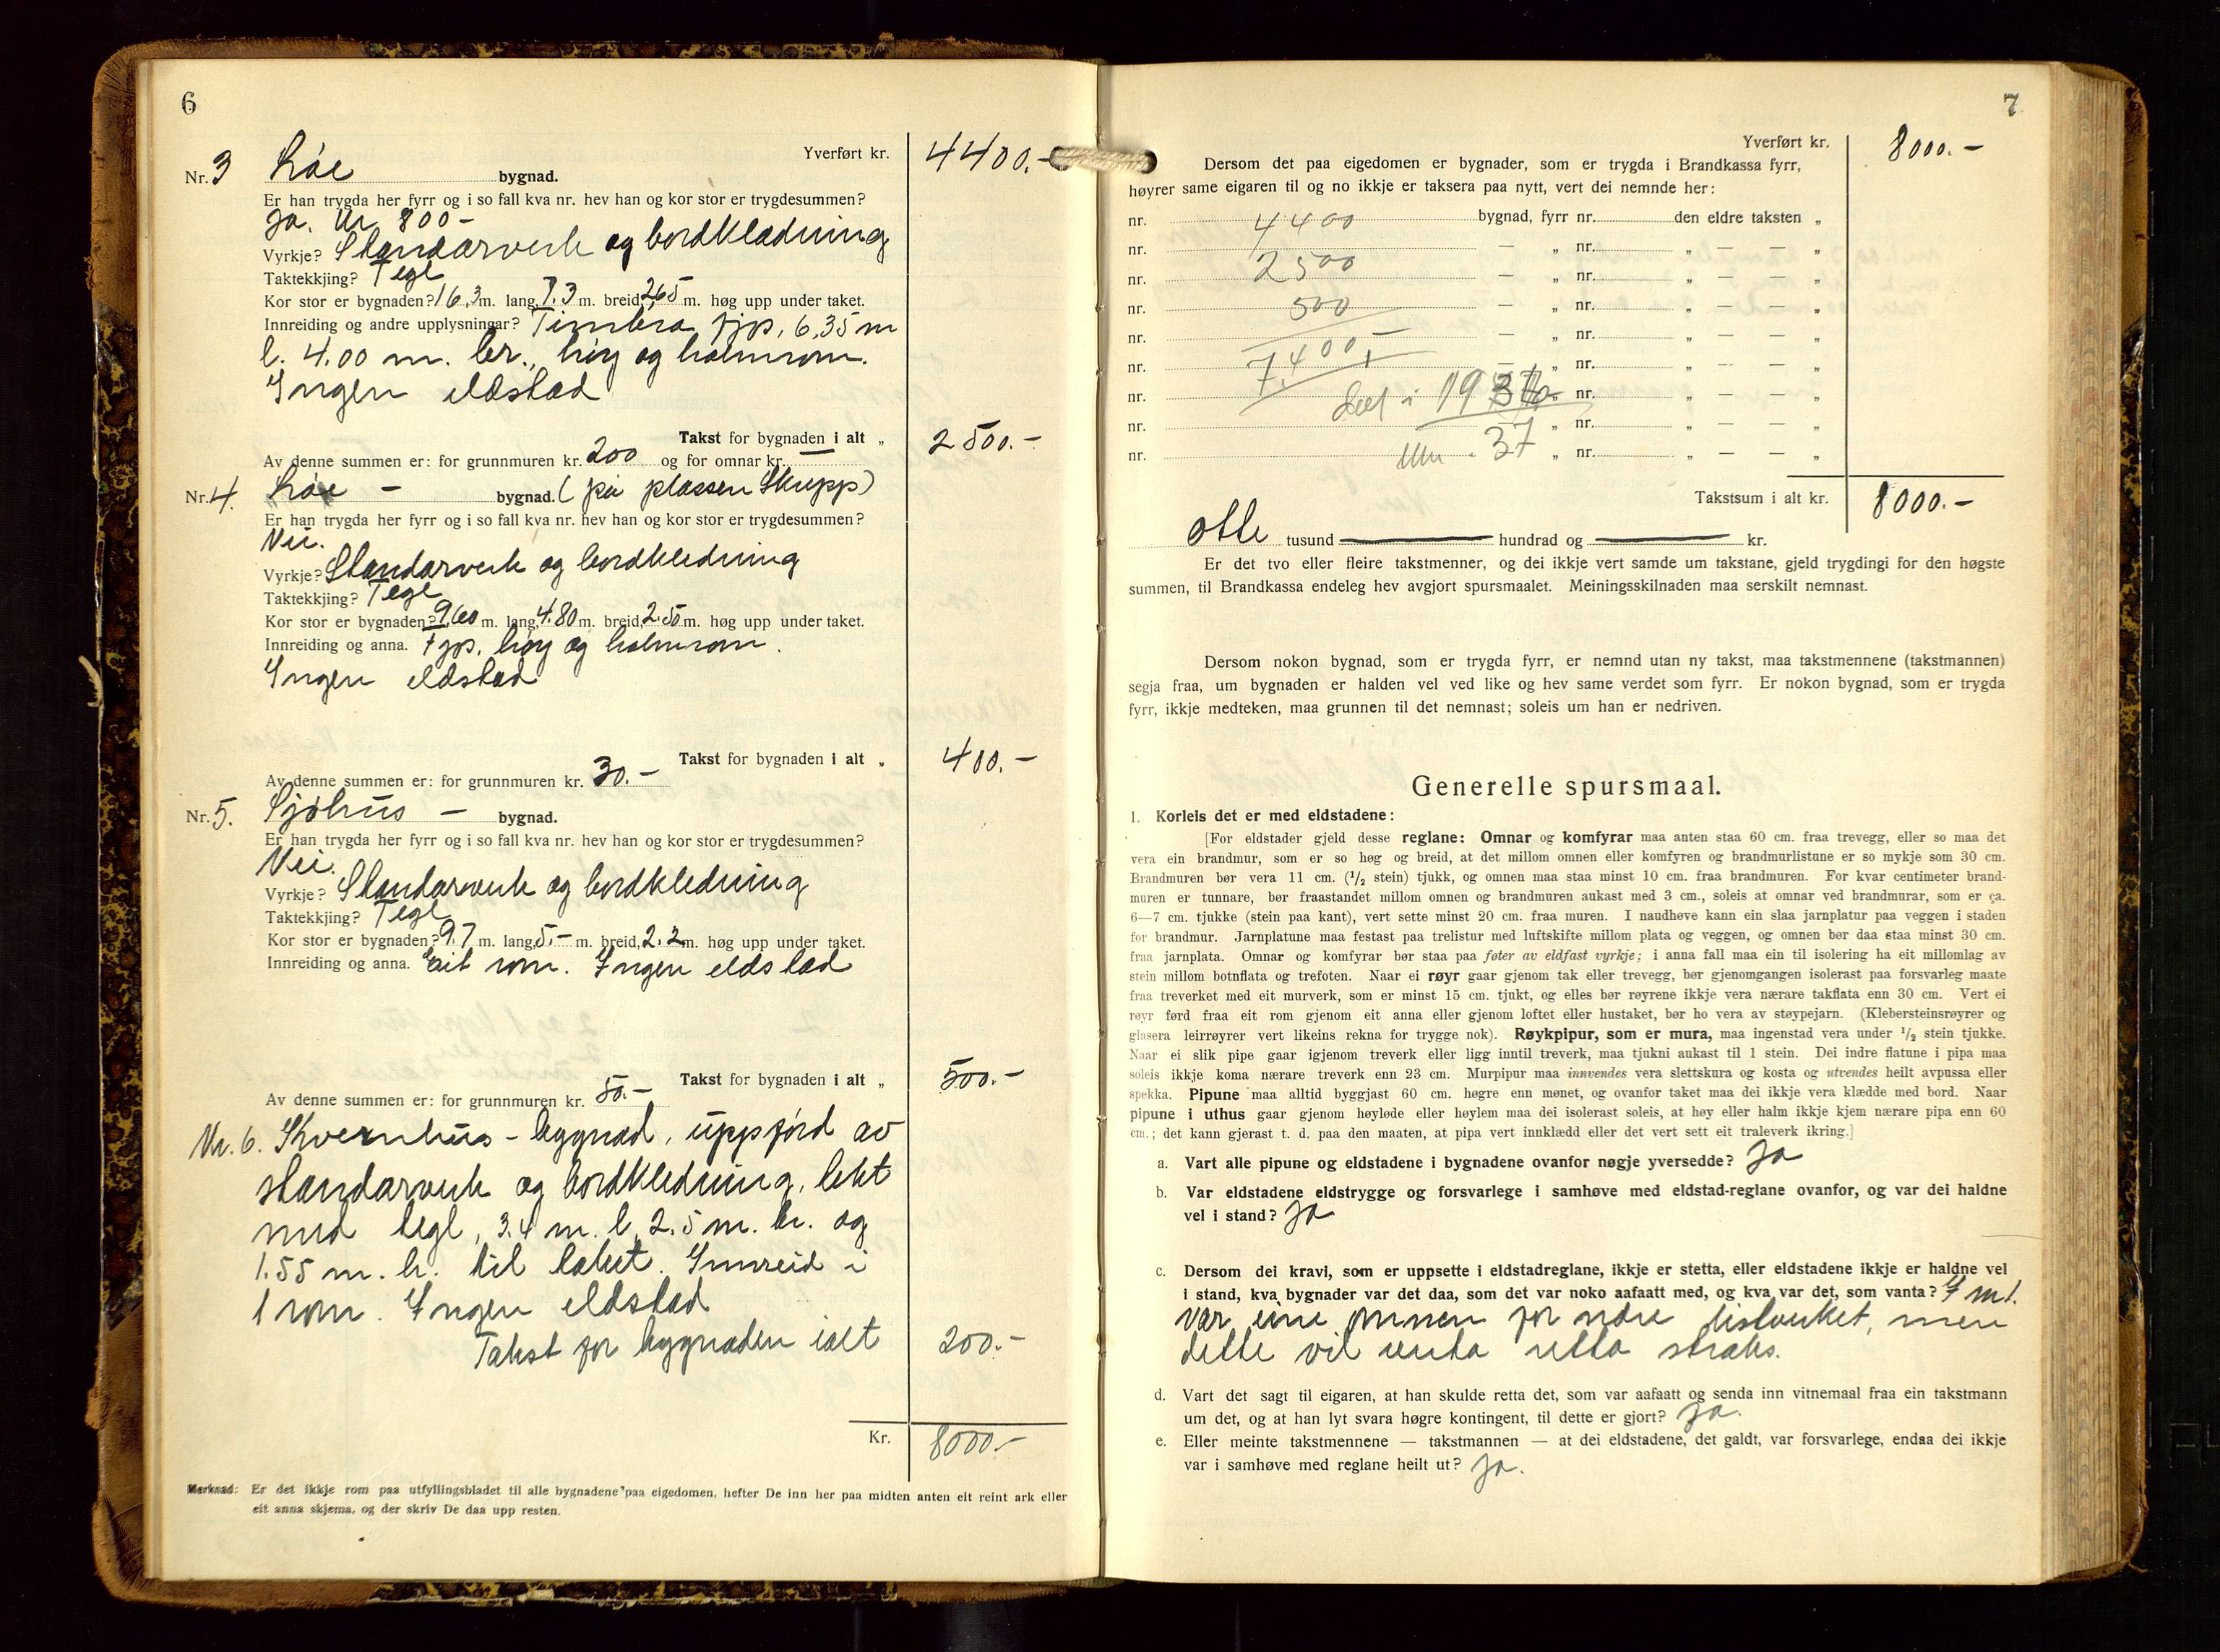 6
Yverført kr. 4400.-
Nr. 3 Löe bygnad.
Er han trygda her fyrr og i so fall kva nr. hev han og kor stor er trygdesummen?
Ja. Kr 800-
Vyrkje? Standarverk og bordklædning
Taktekkjing? Tegl
Kor stor er bygnaden? 16.3 m. lang, 7.3 m. breid, 2.65 m. høg upp under taket.
Innreiding og andre upplysningar? Timbra fjøs, 6,35 m
l. 4.00 m. br., høy og halmrom.
Ingen eldstad
Takst for bygnaden i alt „ 2500.-
Av denne summen er: for grunnmuren kr. 200 og for omnar kr. —
Nr. 4. Löe - bygnad. (på plassen Skupp)
Er han trygda her fyrr og i so fall kva nr. hev han og kor stor er trygdesummen?
Nei.
Vyrkje? Standarverk og bordkledning
Taktekkjing? Tegl
Kor stor er bygnaden? 9,60 m. lang, 4.80 m. breid, 2.50 m. høg upp under taket.
Innreiding og anna. Fjøs, høy og halmrom.
Ingen eldstad
Takst for bygnaden i alt „ 400.-
Av denne summen er: for grunnmuren kr. 30.-
Nr. 5. Sjöhus - bygnad.
Er han trygda her fyrr og i so fall kva nr. hev han og kor stor er trygdesummen?
Nei.
Vyrkje? Standarverk og bordkledning
Taktekkjing? Tegl
Kor stor er bygnaden? 9.7 m. lang, 5.- m. breid, 2.2 m. høg upp under taket.
Innreiding og anna. Eit rom. Ingen eldstad
Takst for bygnaden i alt „ 500.-
Av denne summen er: for grunnmuren kr. 50.-
Nr. 6. Kvernhus - bygnad, uppförd av
standarverk og bordkledning, tekt
med tegl, 3.4 m. l. 2.5 m. br. og
1.55 m. h. til taket. Innreid i
1 rom. Ingen eldstad
Takst for bygnaden ialt 200.-
Kr. 8000.-
Merknad: Er det ikkje rom paa utfyllingsbladet til alle bygnadene paa eigedomen, hefter De inn her paa midten anten eit reint ark eller
eit anna skjema, og der skriv De daa upp resten.
7
Yverført kr. 8000.-
Dersom det paa eigedomen er bygnader, som er trygda i Brandkassa fyrr,
høyrer same eigaren til og no ikkje er taksera paa nytt, vert dei nemnde her:
nr. 4400 bygnad, fyrr nr. den eldre taksten „
nr. — „ nr. „ — — „
nr. 2500 — „ nr. „ — — „
nr. 500 — „ nr. „ — — „
nr. — „ nr. „ — — „
nr. 7.400,- — „ nr. „ — — „
nr. i 1936 „ nr. „ — — „
nr. „ nr. „ — — „
nr. 37 „ nr. „ — — „
Takstsum i alt kr. 8000.-
otte tusund — hundrad og — kr.
Er det tvo eller fleire takstmenner, og dei ikkje vert samde um takstane, gjeld trygdingi for den høgste
summen, til Brandkassa endeleg hev avgjort spursmaalet. Meiningsskilnaden maa serskilt nemnast.
Dersom nokon bygnad, som er trygda fyrr, er nemnd utan ny takst, maa takstmennene (takstmannen)
segja fraa, um bygnaden er halden vel ved like og hev same verdet som fyrr. Er nokon bygnad, som er trygda
fyrr, ikkje medteken, maa grunnen til det nemnast; soleis um han er nedriven.
Generelle spursmaal.
1. Korleis det er med eldstadene:
[For eldstader gjeld desse reglane: Omnar og komfyrar maa anten staa 60 cm. fraa trevegg, eller so maa det
vera ein brandmur, som er so høg og breid, at det millom omnen eller komfyren og brandmurlistune er so mykje som 30 cm.
Brandmuren bør vera 11 cm. (1/2 stein) tjukk, og omnen maa staa minst 10 cm. fraa brandmuren. For kvar centimeter brand-
muren er tunnare, bør fraastandet millom omnen og brandmuren aukast med 3 cm., soleis at omnar ved brandmurar, som er ça.
6—7 cm. tjukke (stein paa kant), vert sette minst 20 cm. fraa muren. I naudhøve kann ein slaa jarnplatur paa veggen i staden
for brandmur. Jarnplatune maa festast paa trelistur med luftskifte millom plata og veggen, og omnen bør daa staa minst 30 cm.
fraa jarnplata. Omnar og komfyrar bør staa paa føter av eldfast vyrkje; i anna fall maa ein til isolering ha eit millomlag av
stein millom botnflata og trefoten. Naar ei røyr gaar gjenom tak eller trevegg, bør gjenomgangen isolerast paa forsvarleg maate
fraa treverket med eit murverk, som er minst 15 cm. tjukt, og elles bør røyrene ikkje vera nærare takflata enn 30 cm. Vert ei
røyr førd fraa eit rom gjenom eit anna eller gjenom loftet eller hustaket, bør ho vera av støypejarn. (Klebersteinsrøyrer og
glasera leirrøyrer vert likeins rekna for trygge nok). Røykpipur, som er mura, maa ingenstad vera under 1/2 stein tjukke.
Naar ei slik pipe gaar igjenom treverk eller ligg inntil treverk, maa tjukni aukast til 1 stein. Dei indre flatune i pipa maa
soleis ikkje koma nærare treverk enn 23 cm. Murpipur maa innvendes vera slettskura og kosta og utvendes heilt avpussa eller
spekka. Pipune maa alltid byggjast 60 cm. høgre enn mønet, og ovanfor taket maa dei ikkje vera klædde med bord. Naar
pipune i uthus gaar gjenom høyløde eller høylem maa dei isolerast soleis, at høy eller halm ikkje kjem nærare pipa enn 60
cm.; det kann gjerast t. d. paa den maaten, at pipa vert innklædd eller det vert sett eit traleverk ikring.]
a. Vart alle pipune og eldstadene i bygnadene ovanfor nøgje yversedde? Ja
b. Var eldstadene eldstrygge og forsvarlege i samhøve med eldstad-reglane ovanfor, og var dei haldne
vel i stand? Ja
c. Dersom dei kravi, som er uppsette i eldstadreglane, ikkje er stetta, eller eldstadene ikkje er haldne vel
i stand, kva bygnader var det daa, som det var noko aafaatt med, og kva var det, som vanta? I nr 1.
var eine omnen for nære listverket, men
dette vil verta retta straks.
d. Vart det sagt til eigaren, at han skulde retta det, som var aafaatt og senda inn vitnemaal fraa ein takstmann
um det, og at han lyt svara høgre kontingent, til dette er gjort? Ja.
e. Eller meinte takstmennene — takstmannen — at dei eldstadene, det galdt, var forsvarlege, endaa dei ikkje
var i samhøve med reglane heilt ut? Ja.